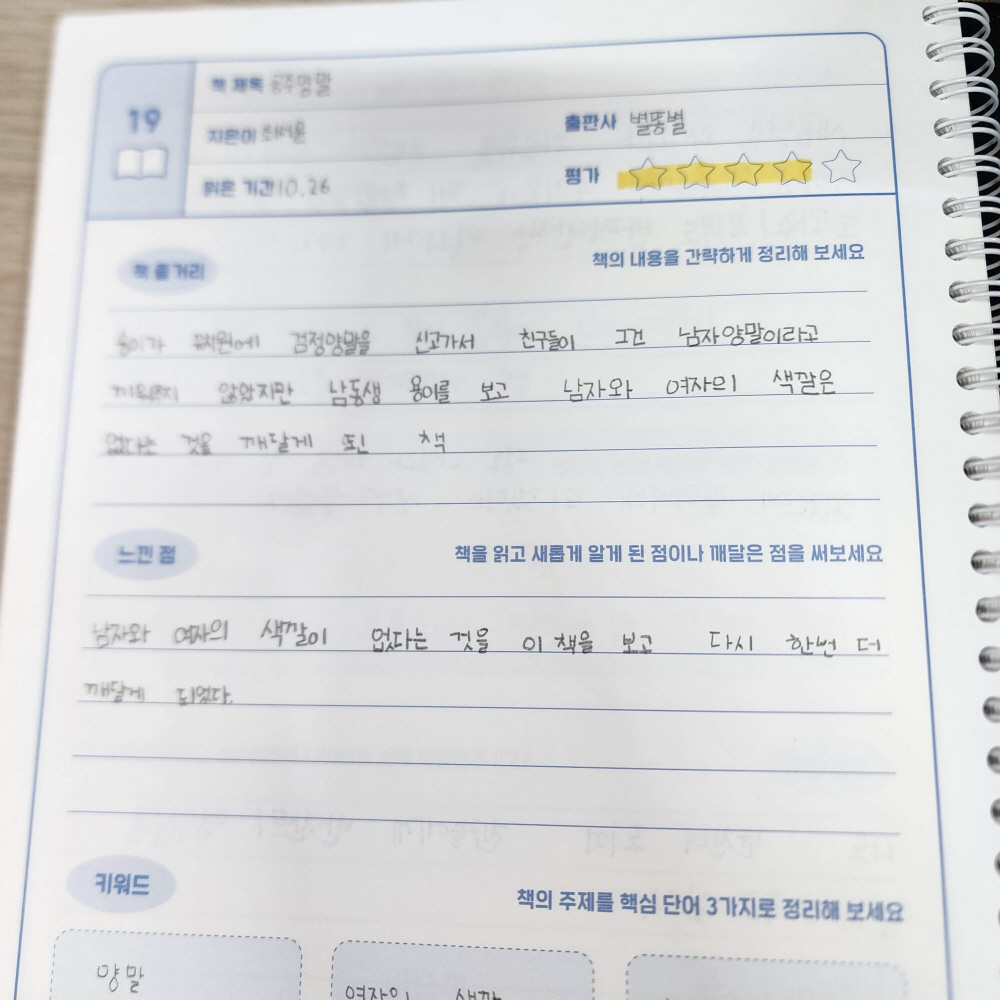 19
책 제목 공주양말
지은이 최서윤
출판사 별똥별
읽은 기간 10.26
평가
책 줄거리
책의 내용을 간략하게 정리해 보세요
유치원에 검정양말을 신고가서 친구들이 그건 남자양말이라고
않았지만 남동생 용이를 보고 남자와 여자의 색깔은
없다는 것을 깨달게 된 책
느낀 점
책을 읽고 새롭게 알게 된 점이나 깨달은 점을 써보세요
남자와 여자의 색깔이 없다는 것을 이 책을 보고 다시 한번 더
깨달게 되었다.
키워드
책의 주제를 핵심 단어 3가지로 정리해 보세요
양말
여자의 색깔